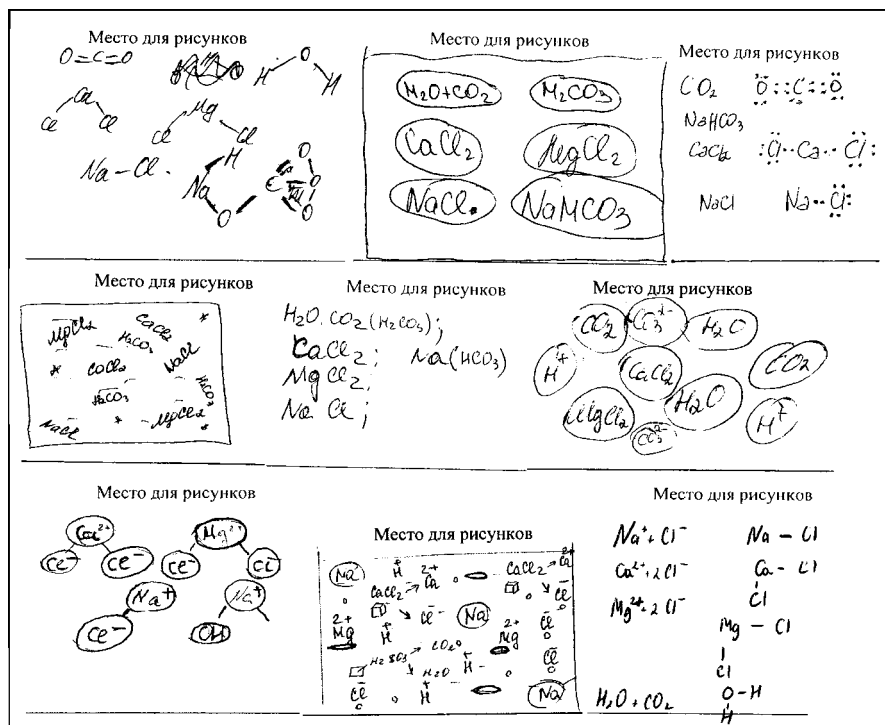 Место для рисунков
O=C=O
H O H
Ca
Cl Cl
Mg
Cl Cl
Na – Cl
H
Na
O C O
O
Место для рисунков
H2O+CO2 H2CO3
CaCl2 MgCl2
NaCl NaHCO3
Место для рисунков
CO2 O::C::O
NaHCO3
CaCl2 :Cl··Ca··Cl:
NaCl Na··Cl:
Место для рисунков
MgCl2 CaCl2 *
H2CO3
* CaCl2 NaCl
H2CO3 H2CO3
NaCl * MgCl2 *
Место для рисунков
H2O·CO2(H2CO3);
CaCl2; Na(HCO3)
MgCl2;
NaCl;
Место для рисунков
CO2 CO3 2- H2O
H+ CaCl2 CO2
MgCl2 H2O H+
CO3 2-
Место для рисунков
Ca2+ Mg2+
Cl– Cl– Cl– Cl–
Na+ Na+
Cl– OH
Место для рисунков
Na H+ 2+ CaCl2 → Ca 2+
CaCl2 → Ca Cl–
Cl– Na Cl
2+ Mg H+ 2+ Mg
H2CO3 CO2 Cl
H2O H+
Cl H+ Na
Место для рисунков
Na+ + Cl– Na – Cl
Ca2+ + 2Cl– Ca – Cl
Cl
Mg2+ + 2Cl– Mg – Cl
Cl
H2O + CO2 O–H
H